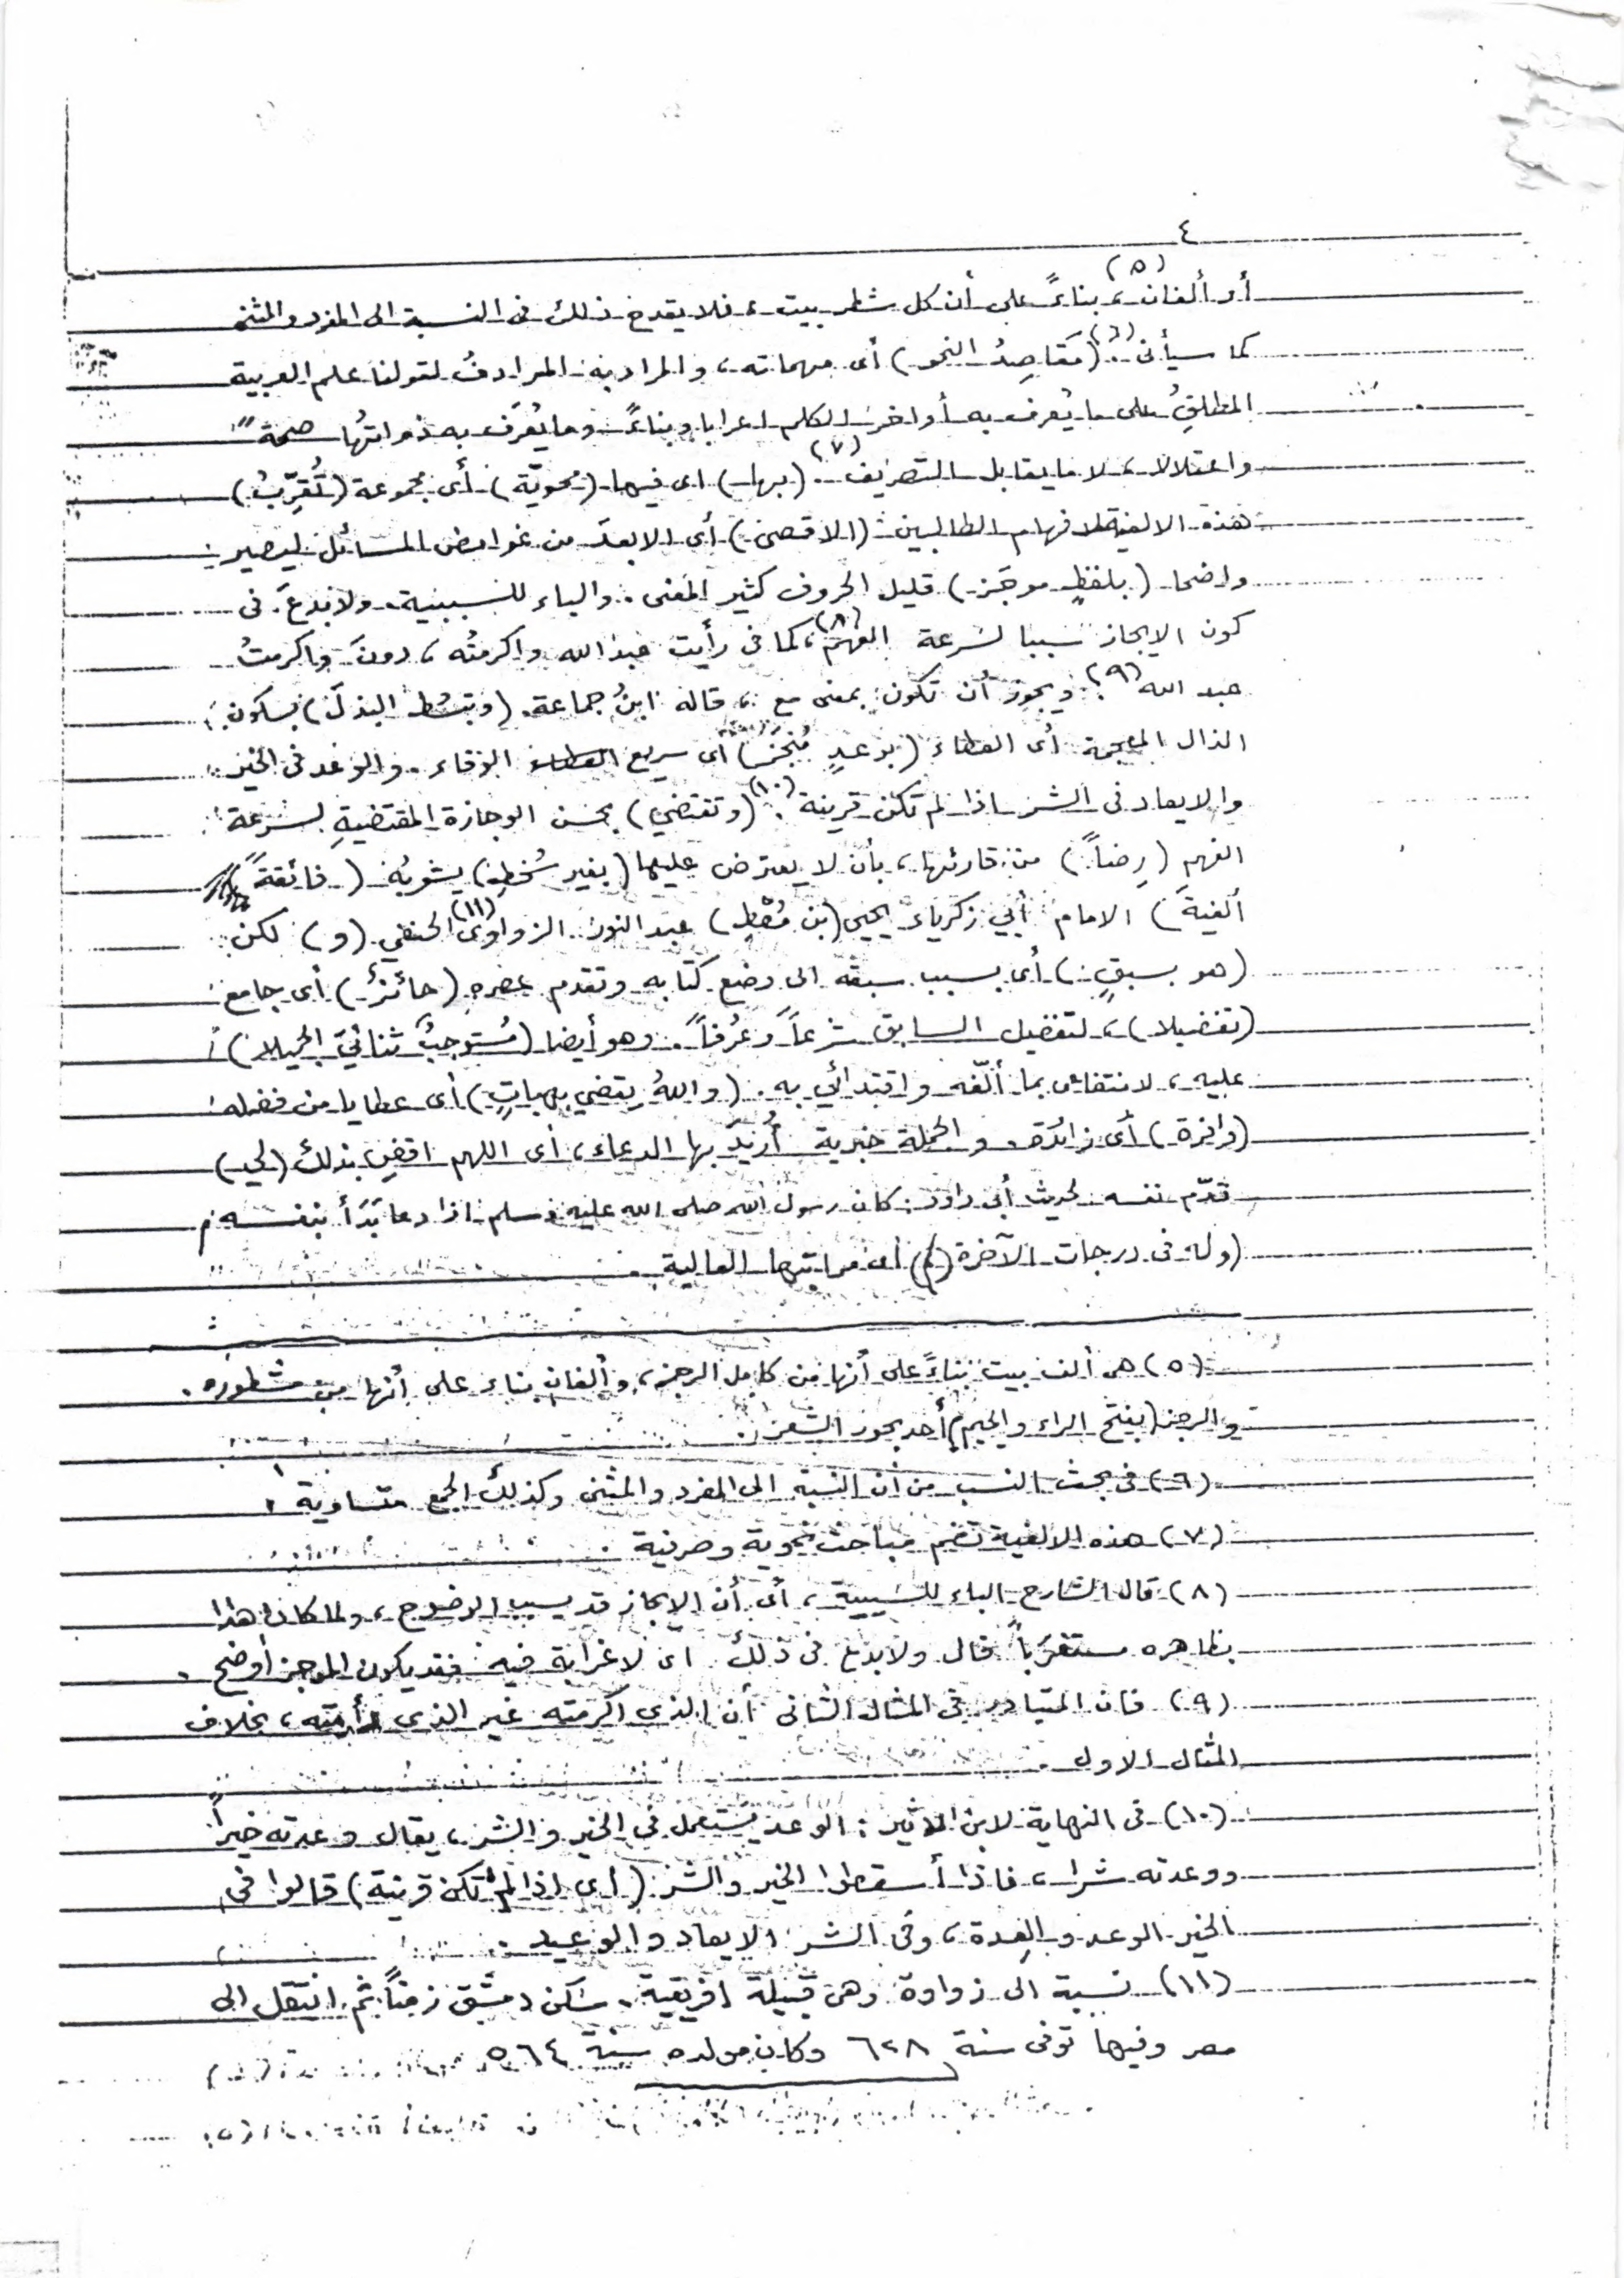 ٤
أو ألفان (٥)، بناءً على أن كل شطر بيت، فلا يقدح ذلك فى النسبة الى المفرد والمثنى
كما سيأتى (٦). (مَقَاصِدُ النحو) أى مهماته، والمراد به المرادفُ لقولنا علم العربية
المطلقِ على ما يُعرف به أواخر الكلم اعرابا وبناءً وما يُعرَف به ذواتُها صحة
واعتلالا، لا ما يقابل التصريف (٧). (بها) اى فيها (محويّة) أى مجموعة (تُقرِّبُ)
هذه الالفية لافهام الطالبين (الاقصى) أى الابعدَ من غوامض المسائل ليصير
واضحا (بلفظٍ موجَز) قليل الحروف كثير المعنى. والباء للسببية. ولا بدعَ فى
كون الايجاز سببا لسرعة الفهم (٨)، كما فى رأيت عبد الله واكرمتُه، دونَ واكرمتُ
عبد الله (٩). ويجوز أن تكون بمعنى مع، قاله ابنُ جماعة. (وتبسُط البذلَ) بسكون
الذال المعجمة أى العطاء (بوعدٍ مُنجَز) اى سريع الوفاء. والوعد فى الخير
والايعاد فى الشر اذا لم تكن قرينة (١٠). (وتقتضي) بحسن الوجازة المقتضيةِ لسرعة
الفهم (رِضاً) من قارئها، بأن لا يعترض عليها (بغير سُخطٍ) يشوبُه (فائقةً
ألفيةَ) الامام أبي زكرياء يحيى (بن مُعْطٍ) عبد النور الزواوى (١١) الحنفي (و) لكن
(هو بسبقٍ) أى بسبب سبقه الى وضع كتابه وتقدم عصره (حائزٌ) أى جامع
(تفضيلا)، لتفضيل السابق شرعاً وعُرفاً. وهو أيضا (مُستوجبٌ ثنائيَ الجميلا)
عليه، لانتفاعى بما ألّفه واقتدائي به. (واللهُ يقضي بهباتٍ) أى عطايا من فضله
(وافرة) أى زائدة. والجملة خبرية أُريدَ بها الدعاء، أى اللهم اقضِ بذلك (لي)
قدّم نفسه لحديث أبى داود: كان رسول الله صلى الله عليه وسلم اذا دعا بَدَأ بنفسه،
(وله فى درجات الآخرة) أى مراتبها العالية.
(٥) هى ألف بيت بناءً على أنها من كامل الرجز، وألفان بناء على أنها من مشطوره.
والرجز (بفتح الراء والجيم) أحد بحور الشعر.
(٦) فى بحث النسب من أن النسبة الى المفرد والمثنى وكذلك الجمع متساوية.
(٧) هذه الالفية تضم مباحث نحوية وصرفية.
(٨) قال الشارح الباء للسببية، أى أن الايجاز قد يسبب الوضوح، ولما كان هذا
بظاهره مستغرَباً قال ولا بدع فى ذلك اى لا غرابة فيه فقد يكون الموجز أوضح.
(٩) فان المتبادر فى المثال الثانى أن الذى اكرمته غير الذى رأيته، بخلاف
المثال الاول.
(١٠) فى النهاية لابن الاثير: الوعد يستعمل فى الخير والشر، يقال وعدته خيراً
ووعدته شرا، فاذا أسقطوا الخير والشر (أى اذا لم تكن قرينة) قالوا فى
الخير الوعد والعِدة، وفى الشر الايعاد والوعيد.
(١١) نسبة الى زواوة وهى قبيلة افريقية. سكن دمشق زمناً ثم انتقل الى
مصر وفيها توفى سنة ٦٢٨ وكان مولده سنة ٥٦٤